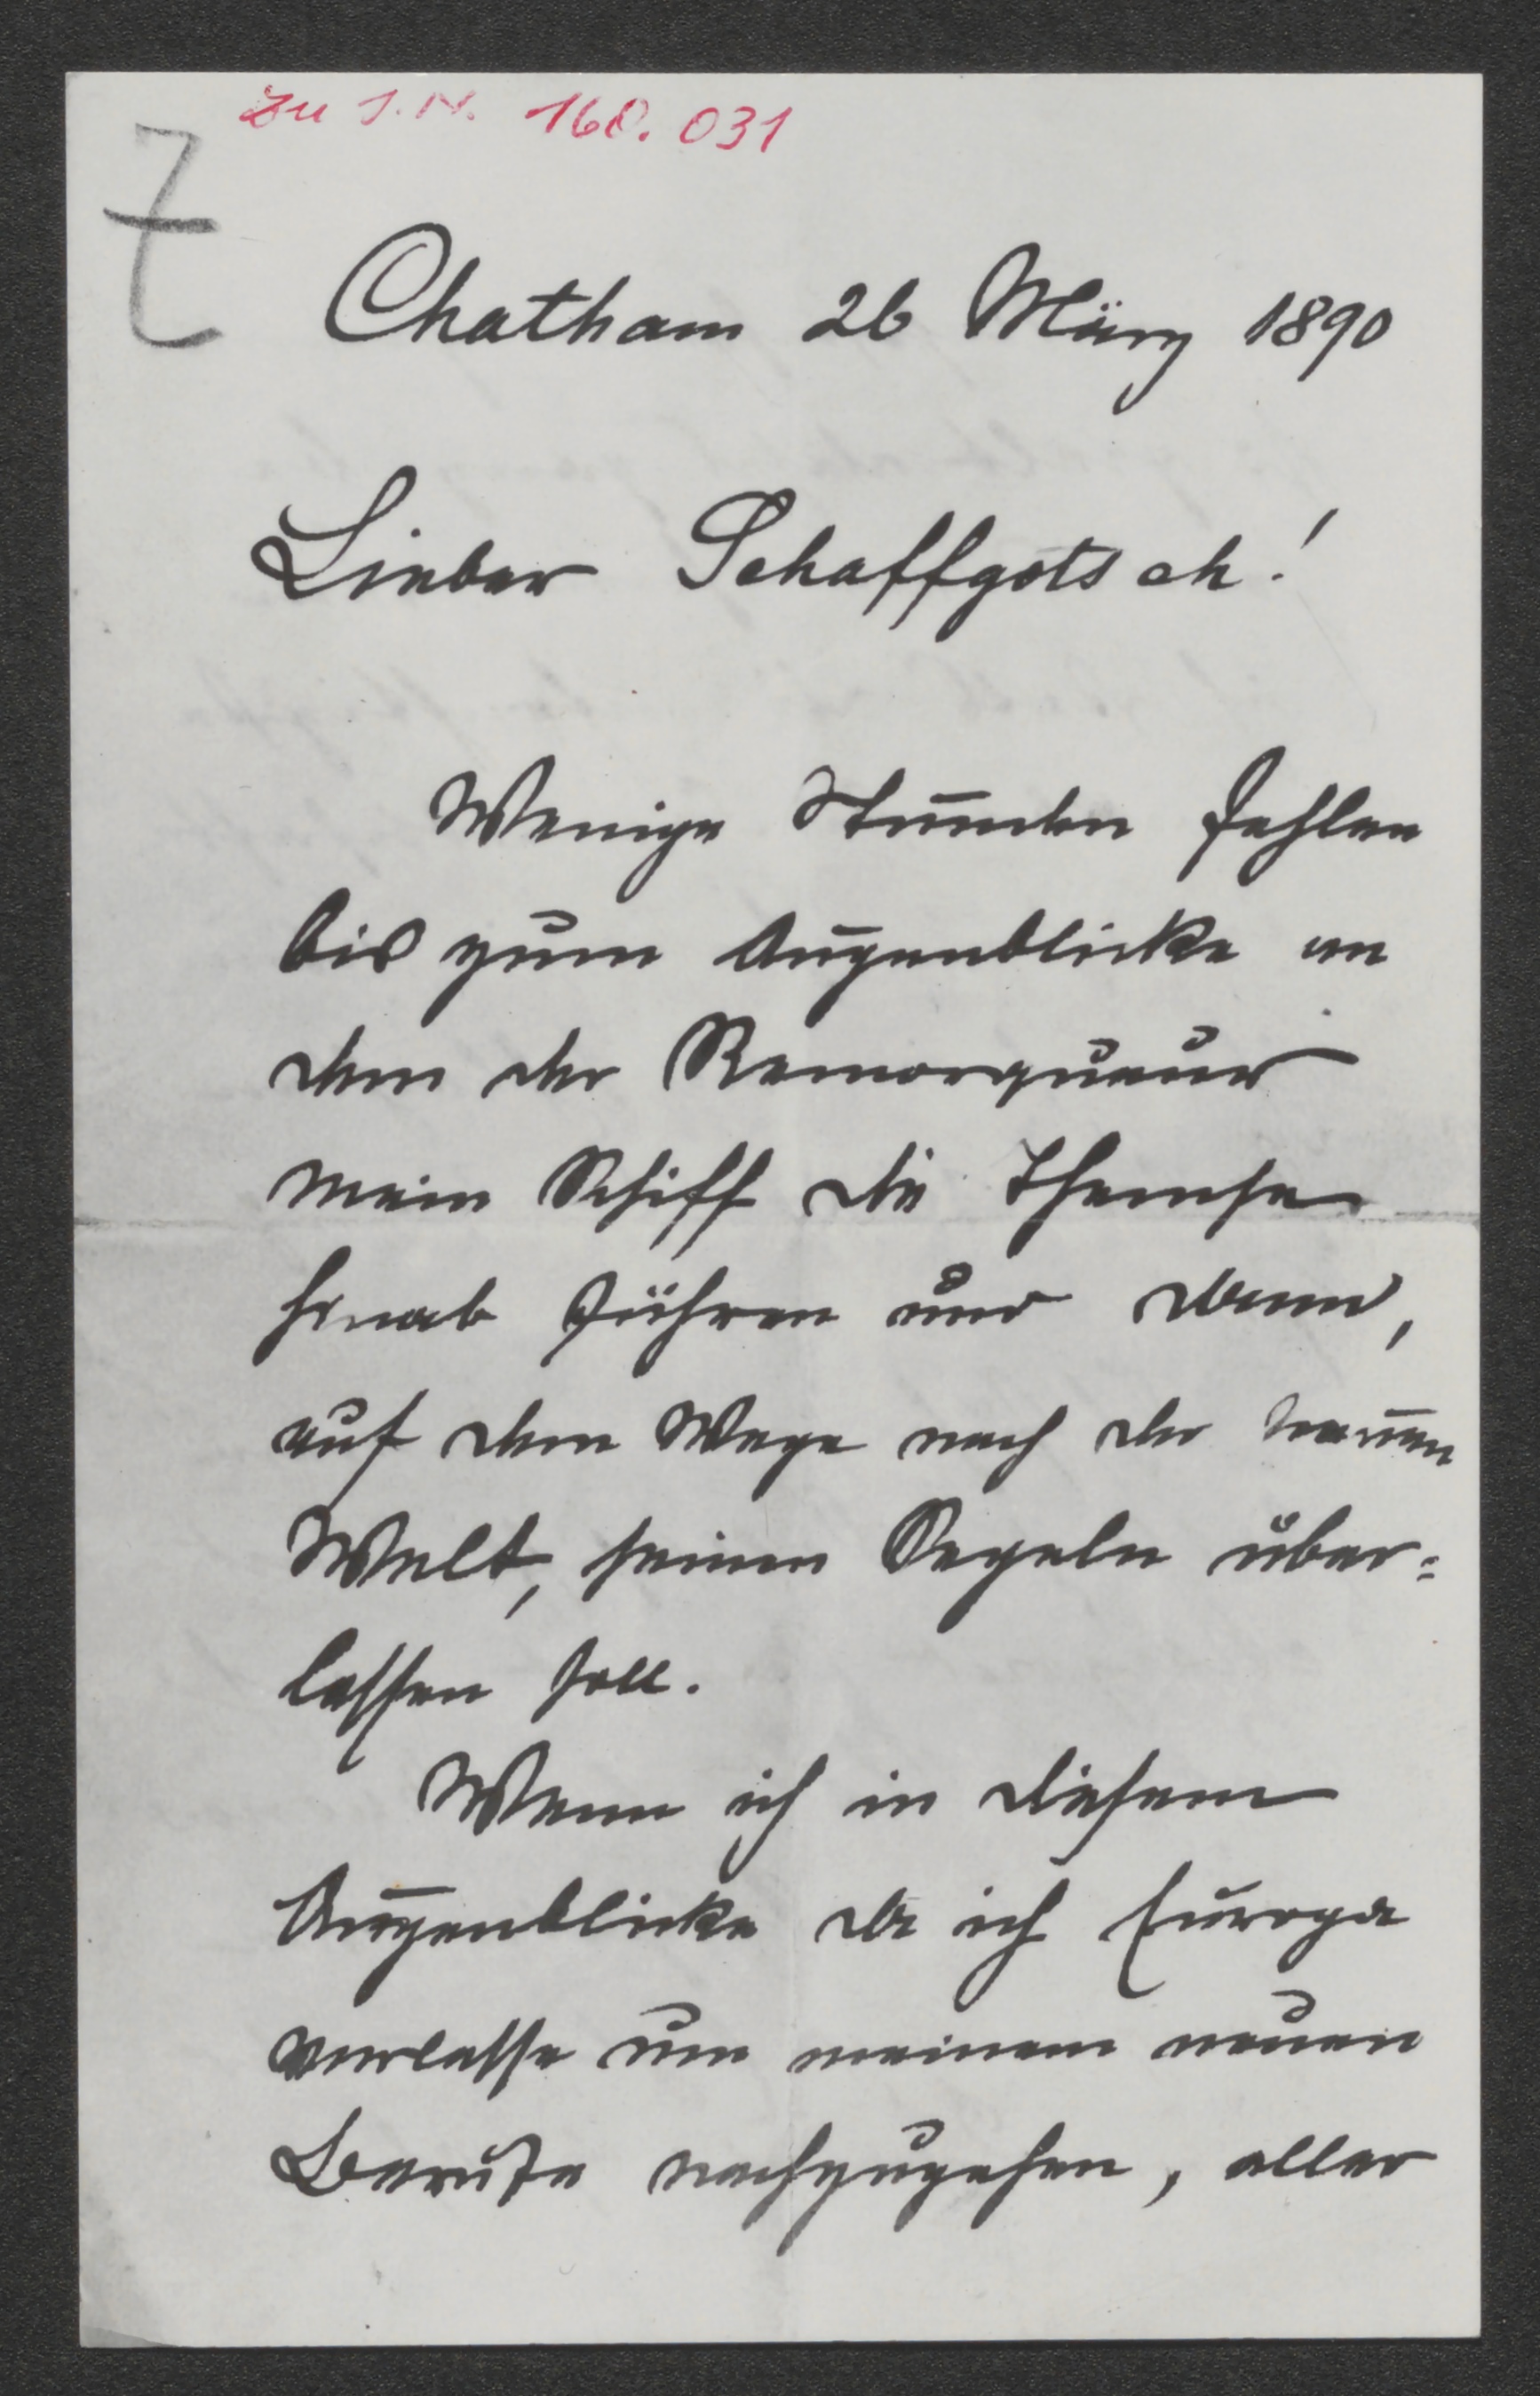 Zu I.N. 160.031
Chatham 26 März 1890
Lieber Schaffgotsch!
Wenige Stunden fehlen
bis zum Augenblicke an
dem der Remorqueur
mein Schiff die Themse
hinab führen und dann,
auf dem Wege nach der neuen
Welt, seinen Segeln über-
lassen soll.
Wenn ich in diesem
Augenblicke da ich Europa
verlasse um meinem neuen
Berufe nachzugehen, aller